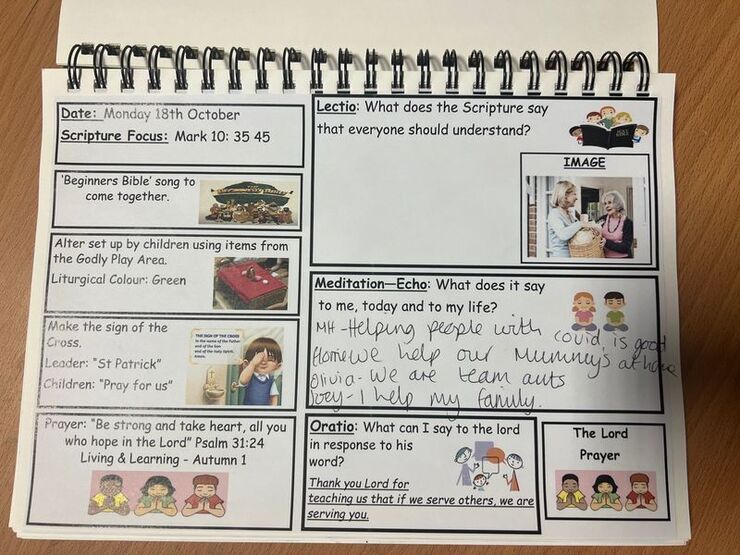 Date: Monday 18th October
Scripture Focus: Mark 10: 35 45
'Beginners Bible' song to
come together.
Alter set up by children using items from
the Godly Play Area.
Liturgical Colour: Green
Make the sign of the
Cross.
THE SIGN OF THE CROSS
In the name of the Father
and of the Son
and of the Holy Spirit.
Amen.
Leader: "St Patrick"
Children: "Pray for us"
Prayer: "Be strong and take heart, all you
who hope in the Lord" Psalm 31:24
Living & Learning - Autumn 1
Lectio: What does the Scripture say
that everyone should understand?
HOLY
BIBLE
IMAGE
Meditation—Echo: What does it say
to me, today and to my life?
MH - Helping people with covid is good
We help our Mummy's at home
Olivia - We are team
Joey - I help my family.
Oratio: What can I say to the lord
in response to his
word?
Thank you Lord for
teaching us that if we serve others, we are
serving you.
The Lord
Prayer